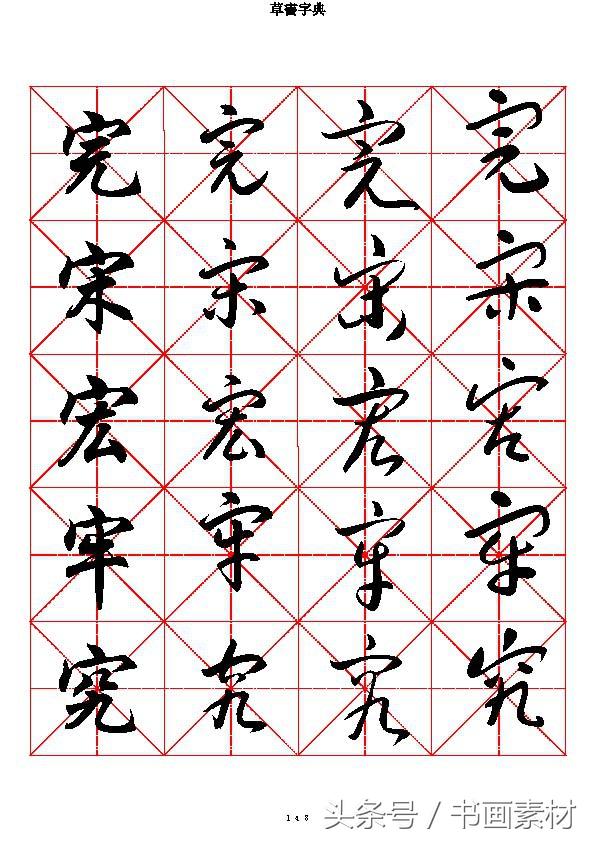 草書字典
完 完 完 完
宋 宋 宋 宋
宏 宏 宏 宏
牢 牢 牢 牢
究 究 究 究
148
头条号 / 书画素材